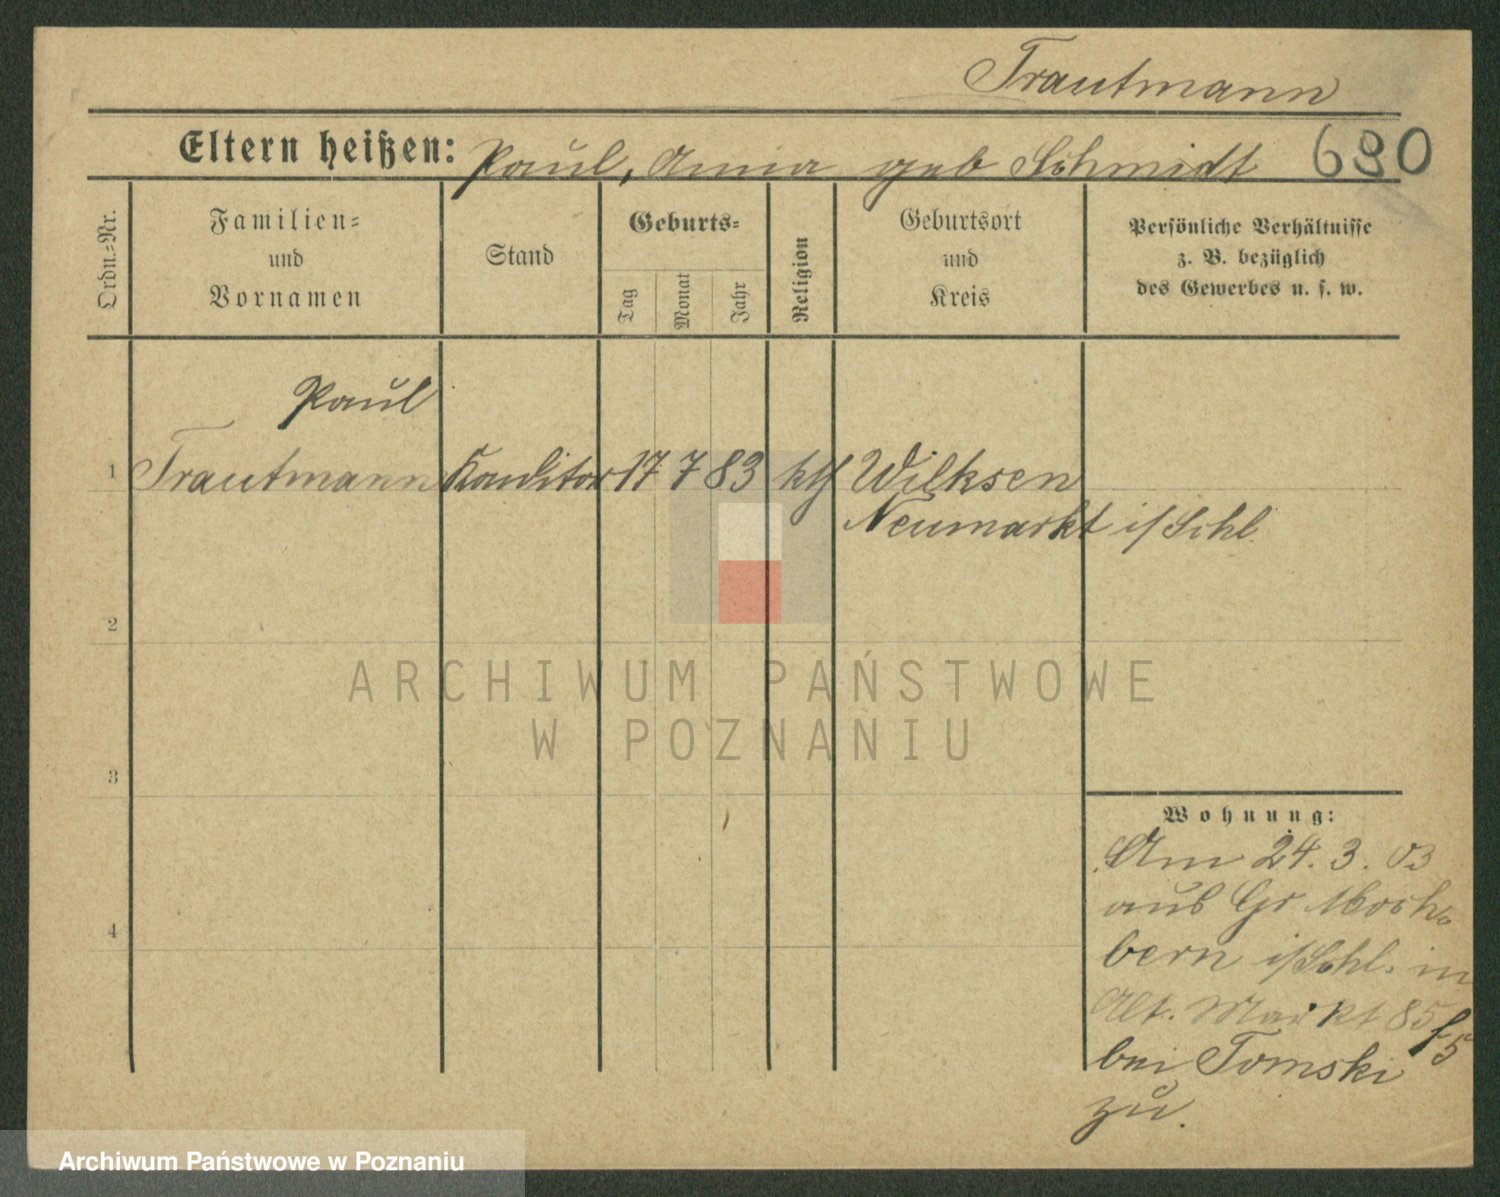 Trautmann
Eltern heißen: Paul, Anna geb Schmidt 690
Ordn.=Nr.
Familien=
und
Vornamen
Stand
Geburts=
Tag
Monat
Jahr
Religion
Geburtsort
und
Kreis
Persönliche Verhältnisse
z. B. bezüglich
des Gewerbes u. s. w.
Paul
1 Trautmann Konditor 17 7 83 kth Wilksen
Neumarkt i/Schl.
2
ARCHIWUM PAŃSTWOWE
W POZNANIU
3
Wohnung:
Am 24. 3. 03
aus Gr Moch
4
bern i/Schl. in
Alt. Markt 85
bei Tomski
zu.
Archiwum Państwowe w Poznaniu